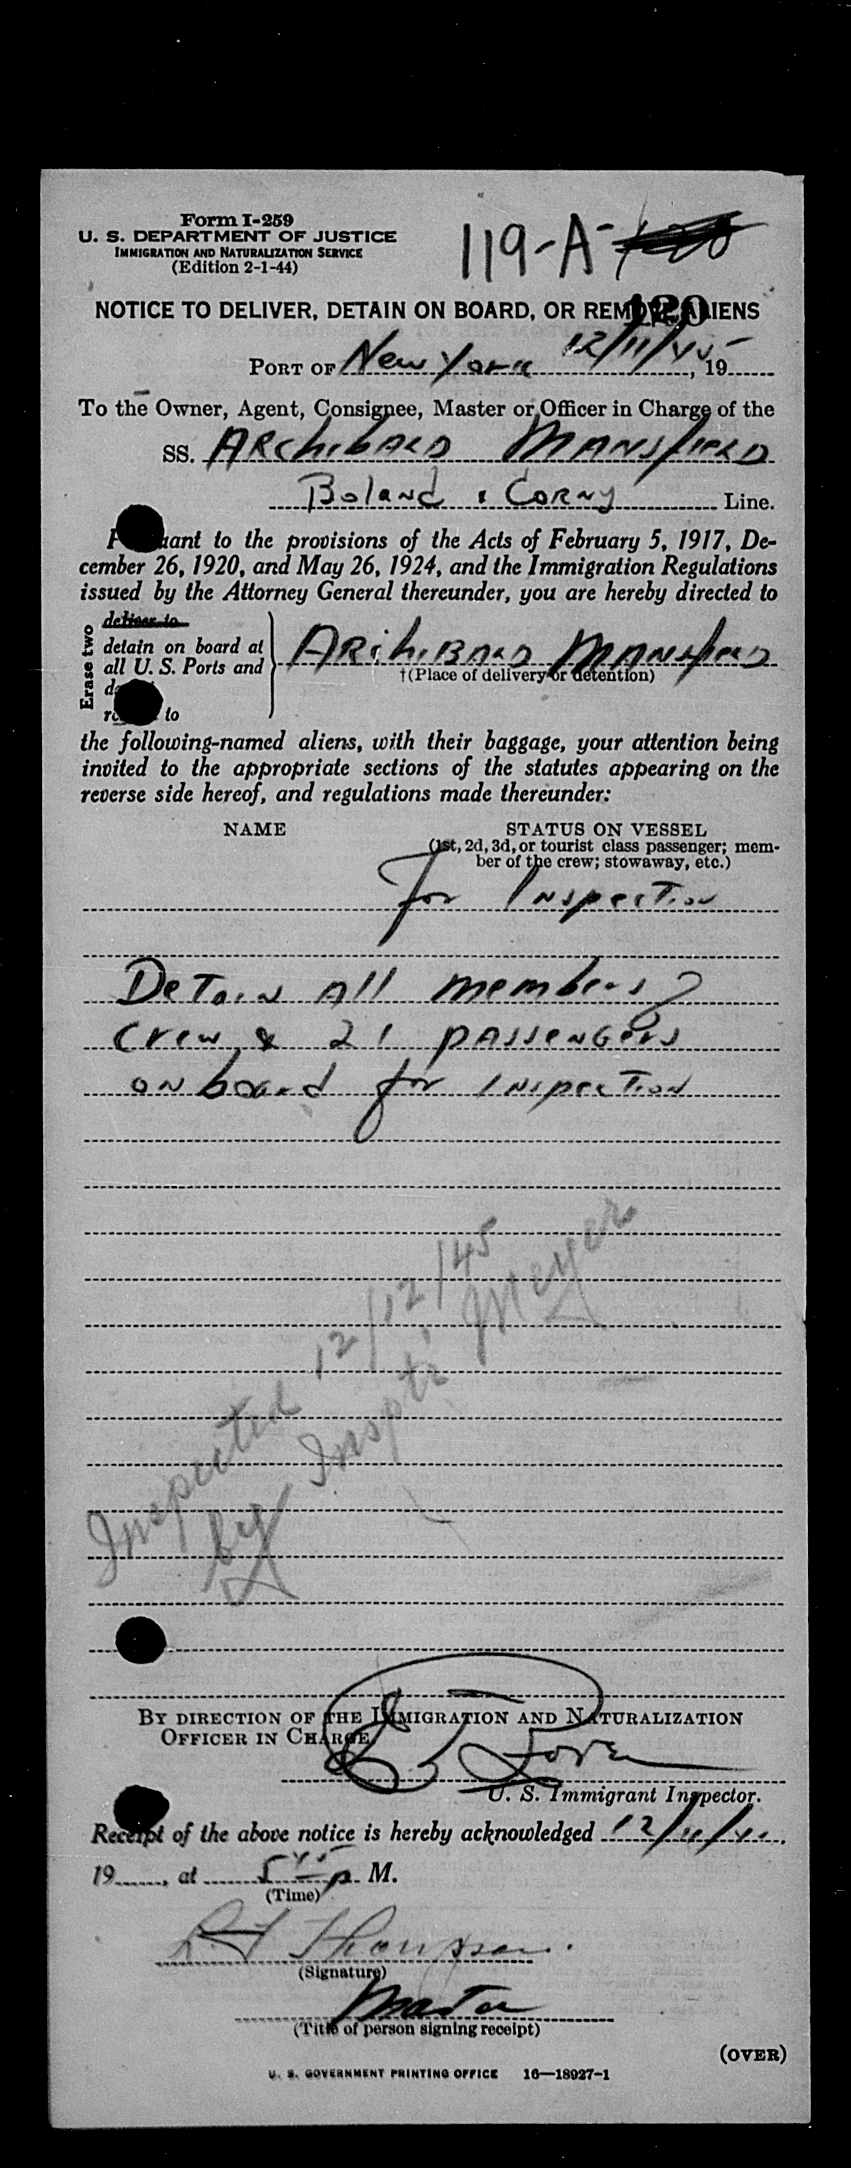 Form I-259
U. S. DEPARTMENT OF JUSTICE
IMMIGRATION AND NATURALIZATION SERVICE
(Edition 2-1-44)
119-A-
120
NOTICE TO DELIVER, DETAIN ON BOARD, OR REMOVE ALIENS
PORT OF New York 12/11/45, 19
To the Owner, Agent, Consignee, Master or Officer in Charge of the
SS. ARChibALD MANSfiELD
Boland & CORNy Line.
Pursuant to the provisions of the Acts of February 5, 1917, De-
cember 26, 1920, and May 26, 1924, and the Immigration Regulations
issued by the Attorney General thereunder, you are hereby directed to
Erase two
deliver to
detain on board at
all U. S. Ports and
to
ARihiBALD MANsfiELD
†(Place of delivery or detention)
the following-named aliens, with their baggage, your attention being
invited to the appropriate sections of the statutes appearing on the
reverse side hereof, and regulations made thereunder:
NAME STATUS ON VESSEL
(1st, 2d, 3d, or tourist class passenger; mem-
ber of the crew; stowaway, etc.)
for Inspection
DeTain All members of
Crew & 21 pAssenGers
on board for inspecTion
Inspected 12/12/45
by Inspt'r Meyer
BY DIRECTION OF THE IMMIGRATION AND NATURALIZATION
OFFICER IN CHARGE,
U. S. Immigrant Inspector.
Receipt of the above notice is hereby acknowledged 12/11/45,
19, at 5 45 p. M.
(Time)
Thompson
(Signature)
Master
(Title of person signing receipt)
(OVER)
U. S. GOVERNMENT PRINTING OFFICE 16—18927-1